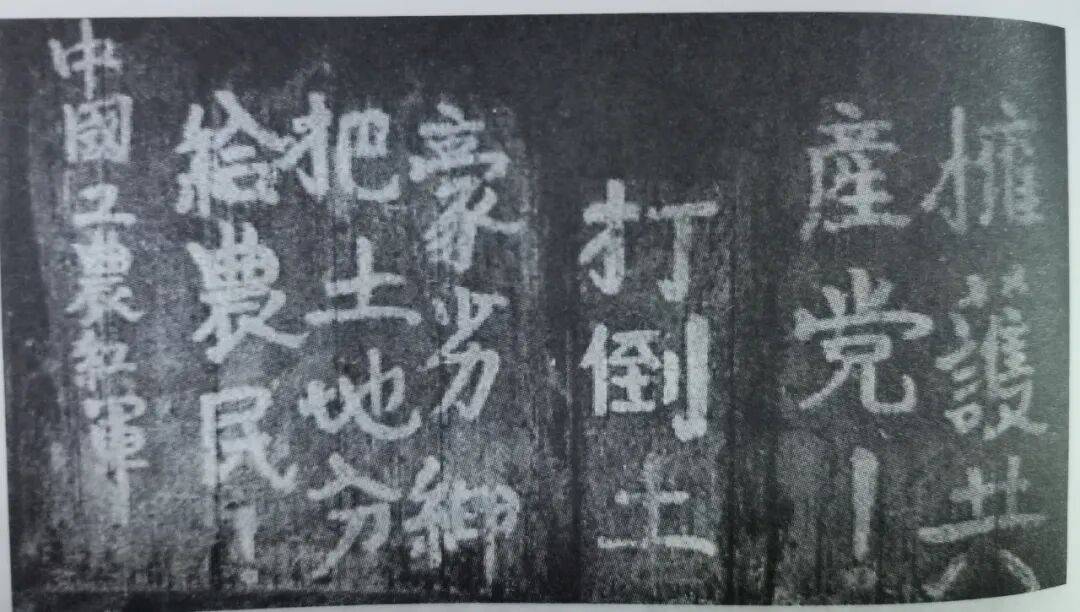 擁護共
產党！
打倒土
豪劣紳
把土地分
給農民！
中國工農紅軍